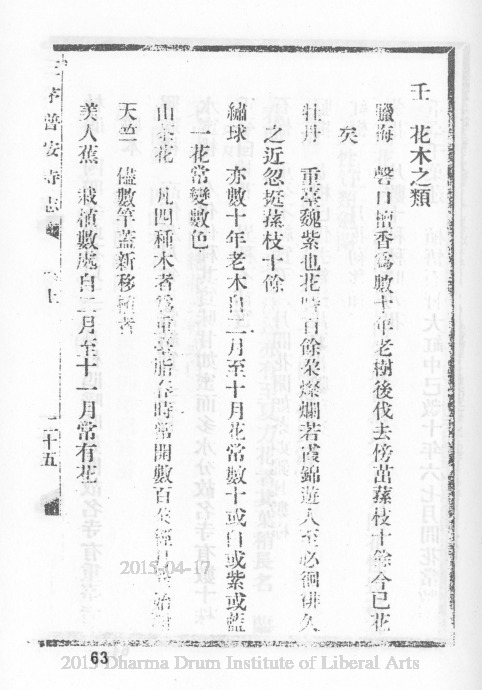 壬 花木之類
臘梅 磬口檀香爲數十年老樹後伐去傍茁蓀枝十餘今已花
矣
牡丹 重臺魏紫也花時百餘朶燦爛若霞錦遊人至必徊徘久
之近忽挺蓀枝十餘
繡球 亦數十年老木自二月至十月花常數十或白或紫或藍
一花常變數色
山茶花 凡四種木者爲重臺 時常開數百朶經
天竺 儘數竿蓋新移植者
美人蕉 栽植數處自二月至十一月常有花
茅普安寺志
二十五
63
2015-04-17
2015 Dharma Drum Institute of Liberal Arts